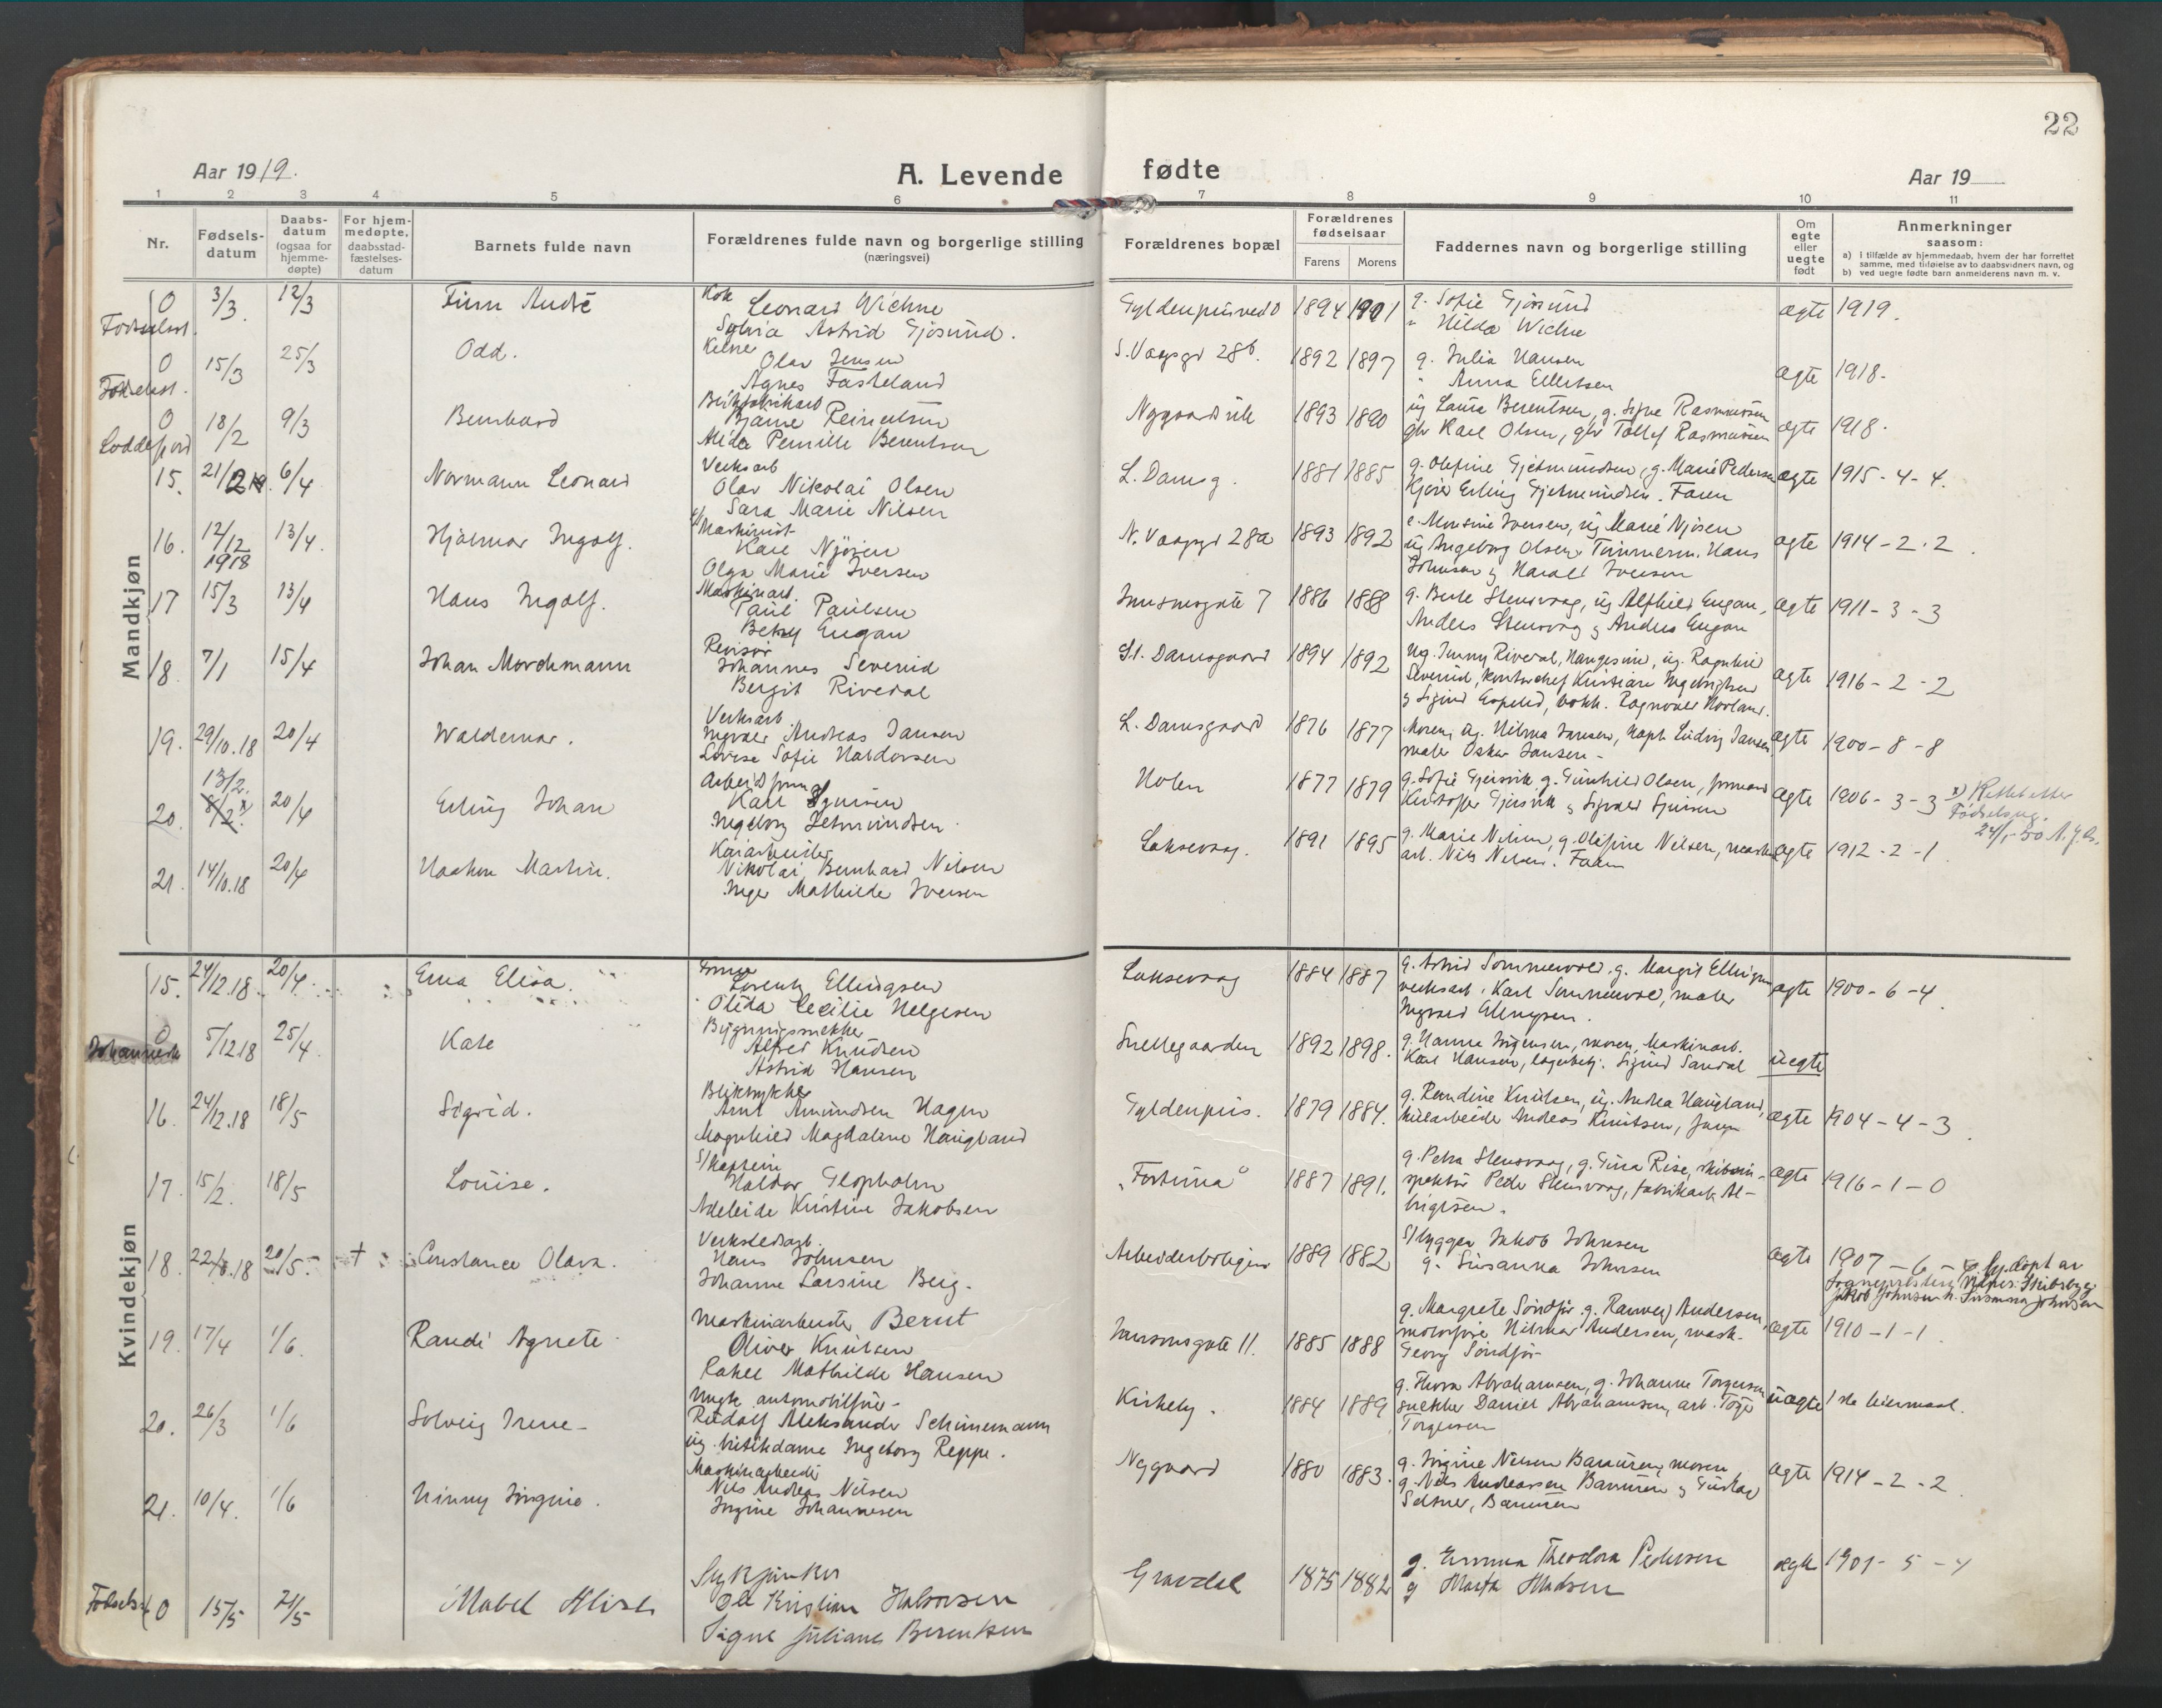 22
Aar 1919.
A. Levende fødte
Aar 19
1 2 3 4 5 6 7 8 9 10 11
Nr.
Fødsels-
datum
Daabs-
datum
(ogsaa for
hjemme-
døpte)
For hjem-
medøpte,
daabsstad-
fæstelses-
datum
Barnets fulde navn
Forældrenes fulde navn og borgerlige stilling
(næringsvei)
Forældrenes bopæl
Forældrenes
fødselsaar
Farens Morens
Faddernes navn og borgerlige stilling
Om
egte
eller
uegte
født
Anmerkninger
saasom:
a) i tilfælde av hjemmedaab, hvem der har forrettet
samme, med tilføielse av to daabsvidners navn, og
b) ved uegte fødte barn anmelderens navn m. v.
Mandkjøn
0 3/3. 12/3 Finn André Kok Leonard Wichne Gyldenpris 1894 1901 g. Sofie Gjøsund ægte 1919.
Fødselsst. Sylvia Astrid Gjøsund. " Hilda Wichne
0 15/3 25/3 Odd. Kelner Olav Jensen S. Vaagsgt 28b. 1892 1897 g. Julia Hansen ægte 1918.
Fødselsst. Agnes Fasteland " Anna Ellertsen
0 18/2 9/3 Bernhard Bjarne Reinertsen 1893 1890 ug Laura Berentsen, g. Signe Rasmussen ægte 1918.
Loddefjord Alida Pernille Berentsen gbr Karl Olsen, gbr Tollef Rasmussen
15. 21/2 19. 6/4 Normann Leonard Verksarb L. Damsg. 1881 1885 g. Olefine Gjetmundsen, g. Marie Pedersen ægte 1915-4-4.
Olav Nikolai Olsen Erling Gjetmundsen. Faren
Sara Marie Nilsen
16. 12/12 1918 13/4. Hjalmar Ingolf. Maskinist N. Vaagsgt 28a 1893 1892 e. Monsine Iversen, ug Marie Njøsen ægte 1914-2-2.
Karl Njøsen ug Ingeborg Olsen, Tømmerm. Hans
Olga Marie Iversen Johnsen og Harald Iversen
17 15/3 13/4 Hans Ingolf. Maskinarb. 7 1886 1888 g. Berte Stensvaag, ug Alfhild Engan, ægte 1911-3-3
Paul Paulsen Anders Stensvaag og Anders Engan
Betsy Engan
18 7/1 15/4 Johan Morchmann Revisor St. Damsgaard 1894 1892 Ug. Jenny Rivedal, Haugesund, ug. Ragnhild ægte 1916-2-2
Johannes Severeid Severeid, kontorchef Kristian Ingebrigtsen
Bergit Rivedal og Sigurd Espeled, bokh. Ragnvald Hovland.
19. 29/10.18 20/4 Waldemar. Verksarb. L. Damsgaard 1876 1877 Moren, ug. Hilma Jansen, kapt. Ludvig Jansen ægte 1900-8-8
Ingvald Andreas Jansen maler Oskar Jansen-
Lovise Sofie Haldorsen
20. 13/2. 8/2. x 20/4 Erling Johan Arbeidsform Holen 1877 1879 g. Sofie Gjersvik g. Gunhild Olsen, formand ægte 1906-3-3 x) Rettet etter
Ingeborg Jetmundsen Kristoffer Gjersvik Fødselsreg.
24/1-50
21. 14/10.18 20/4 Haakon Martin. Kaiarbeider Laksevaag. 1891 1895 g. Marie Nilsen, g. Olefine Nilsen, mask. ægte 1912-2-1
Nikolai Bernhard Nilsen arb. Nils Nilsen. Faren
Inger Mathilde Iversen
Kvindekjøn
15. 24/12.18. 20/4. Erna Elisa. Laksevaag 1884 1887 g. Astrid Sommervold. g. Margit Ellingsen ægte 1900-6-4
Lorentz Ellingsen verksarb. Karl Sommervold, maler
Olida Cecilie Helgesen Ingvald Ellingsen.
0 5/12 18 25/4 Kate Bygningssnekker Snellegaarden 1892 1898. g. Hanna Jørgensen, moren, Maskinarb. uegte
Johanneski Alfred Knudsen Karl Hansen, lagerbetj. Sigurd Sandal
Astrid Hansen
16. 24/12.18 18/5 Sigrid. Bliktrykker Gyldenpris. 1879 1884. g. Randine Knutsen, ug. Andrea Haugland, ægte 1904-4-3
Arnt Amundsen Hagen Andreas Knutsen, faren
Magnhild Magdalene Haugland
17. 15/2. 18/5 Louise. S/Kaptein "Fortuna" 1887 1891. g. Petra Stensvaag, g. Gina Rise, skibsin- ægte 1916-1-0
Haldor Glopholm spektør Peder Stensvaag, fabrikarb. Al-
Adeleide Kristine Jakobsen brigtsen.
18. 22/8.18 20/5. + Constance Olava. Verkstedsarb. Arbeiderboligen 1889 1882 S/bygger Jakob Johnsen ægte 1907-6-5. Hj.døpt av
Hans Johnsen g. Susanna Johnsen Sognepresten. Skibsbyg.
Johanne Larsine Berg. Jakob Johnsen h. Susanna Johnsen
19. 17/4 1/6. Randi Agnete Maskinarbeider Bernt 11. 1885 1888 g. Margrete Søndfør g. Ranveig Andersen, ægte 1910-1-1.
Oliver Knutsen Hilmar Andersen, mask.
Rakel Mathilde Hansen Georg Søndfør
20. 26/3 1/6 Solveig Irene- Ungk. automobilfør- Kirkeby. 1884 1889 g. Thora Abrahamsen, g. Johanne Torgersen uægte 1ste leiermaal.
Rudolf Aleksander Schünemann snekker Daniel Abrahamsen, arb. Torger
ug. butikdame Ingeborg Reppe. Torgersen
21. 10/4. 1/6 Ninny Jorgine. Maskinarbeider Nygaard 1880 1883. g. Jorgine Nilsen moren ægte 1914-2-2.
Nils Andreas Nilsen g. Nils Andreassen
Jorgine Johannesen
0 15/5 21/5 Mabel Gravdal 1875 1882 g. Emma Theodora Pedersen ægte 1901-5-4
Fødselsst. Ole Kristian Halvorsen g Marta
Signe Juliane Berentsen